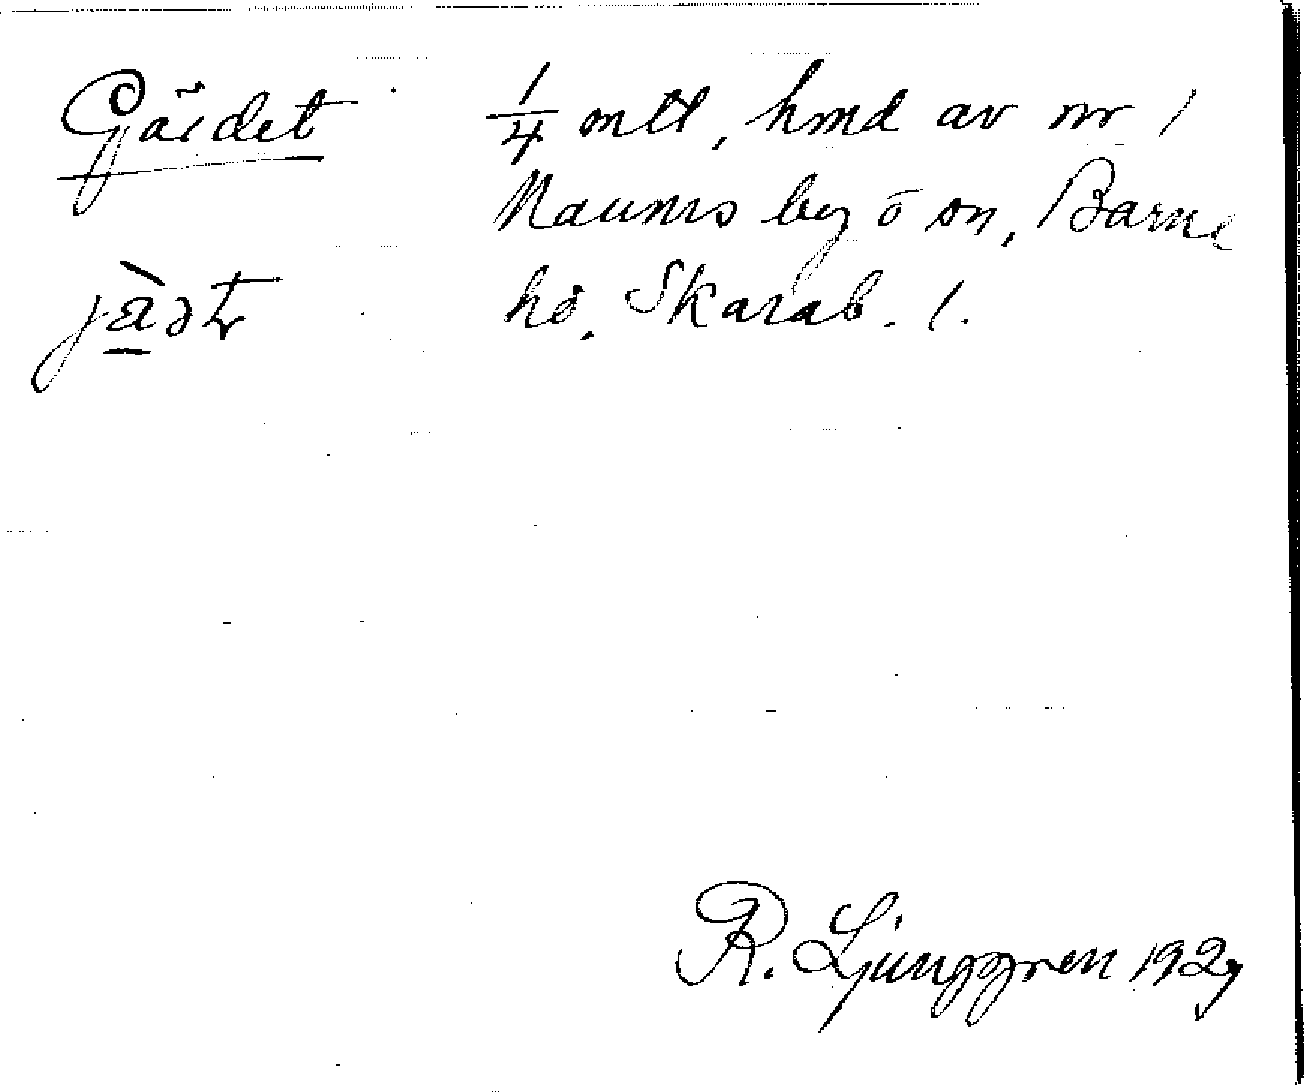 Gärdet 1/4 mtl, hmd av nr 1
Naums by o sn, Barne
jä̀ət hd. Skarab. l.
R. Ljunggren 1929